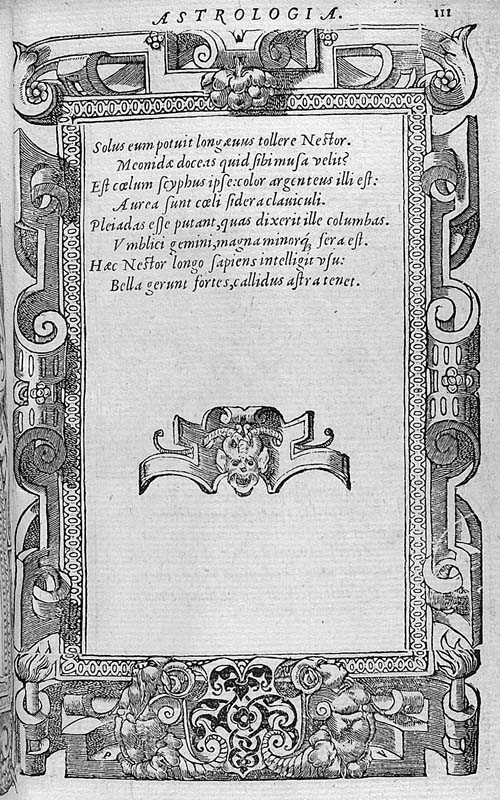 ASTROLOGIA.
111
Solus eum potuit longævus tollere Nestor.
Meonidæ doceas quid sibi musa velit?
Est cœlum scyphus ipse: color argenteus illi est:
Aurea sunt cœli sidera claviculi.
Pleiadas esse putant, quas dixerit ille columbas.
Vmblici gemini, magna minorq́; fera est.
Hæc Nestor longo sapiens intelligit vsu:
Bella gerunt fortes, callidus astra tenet.
P V